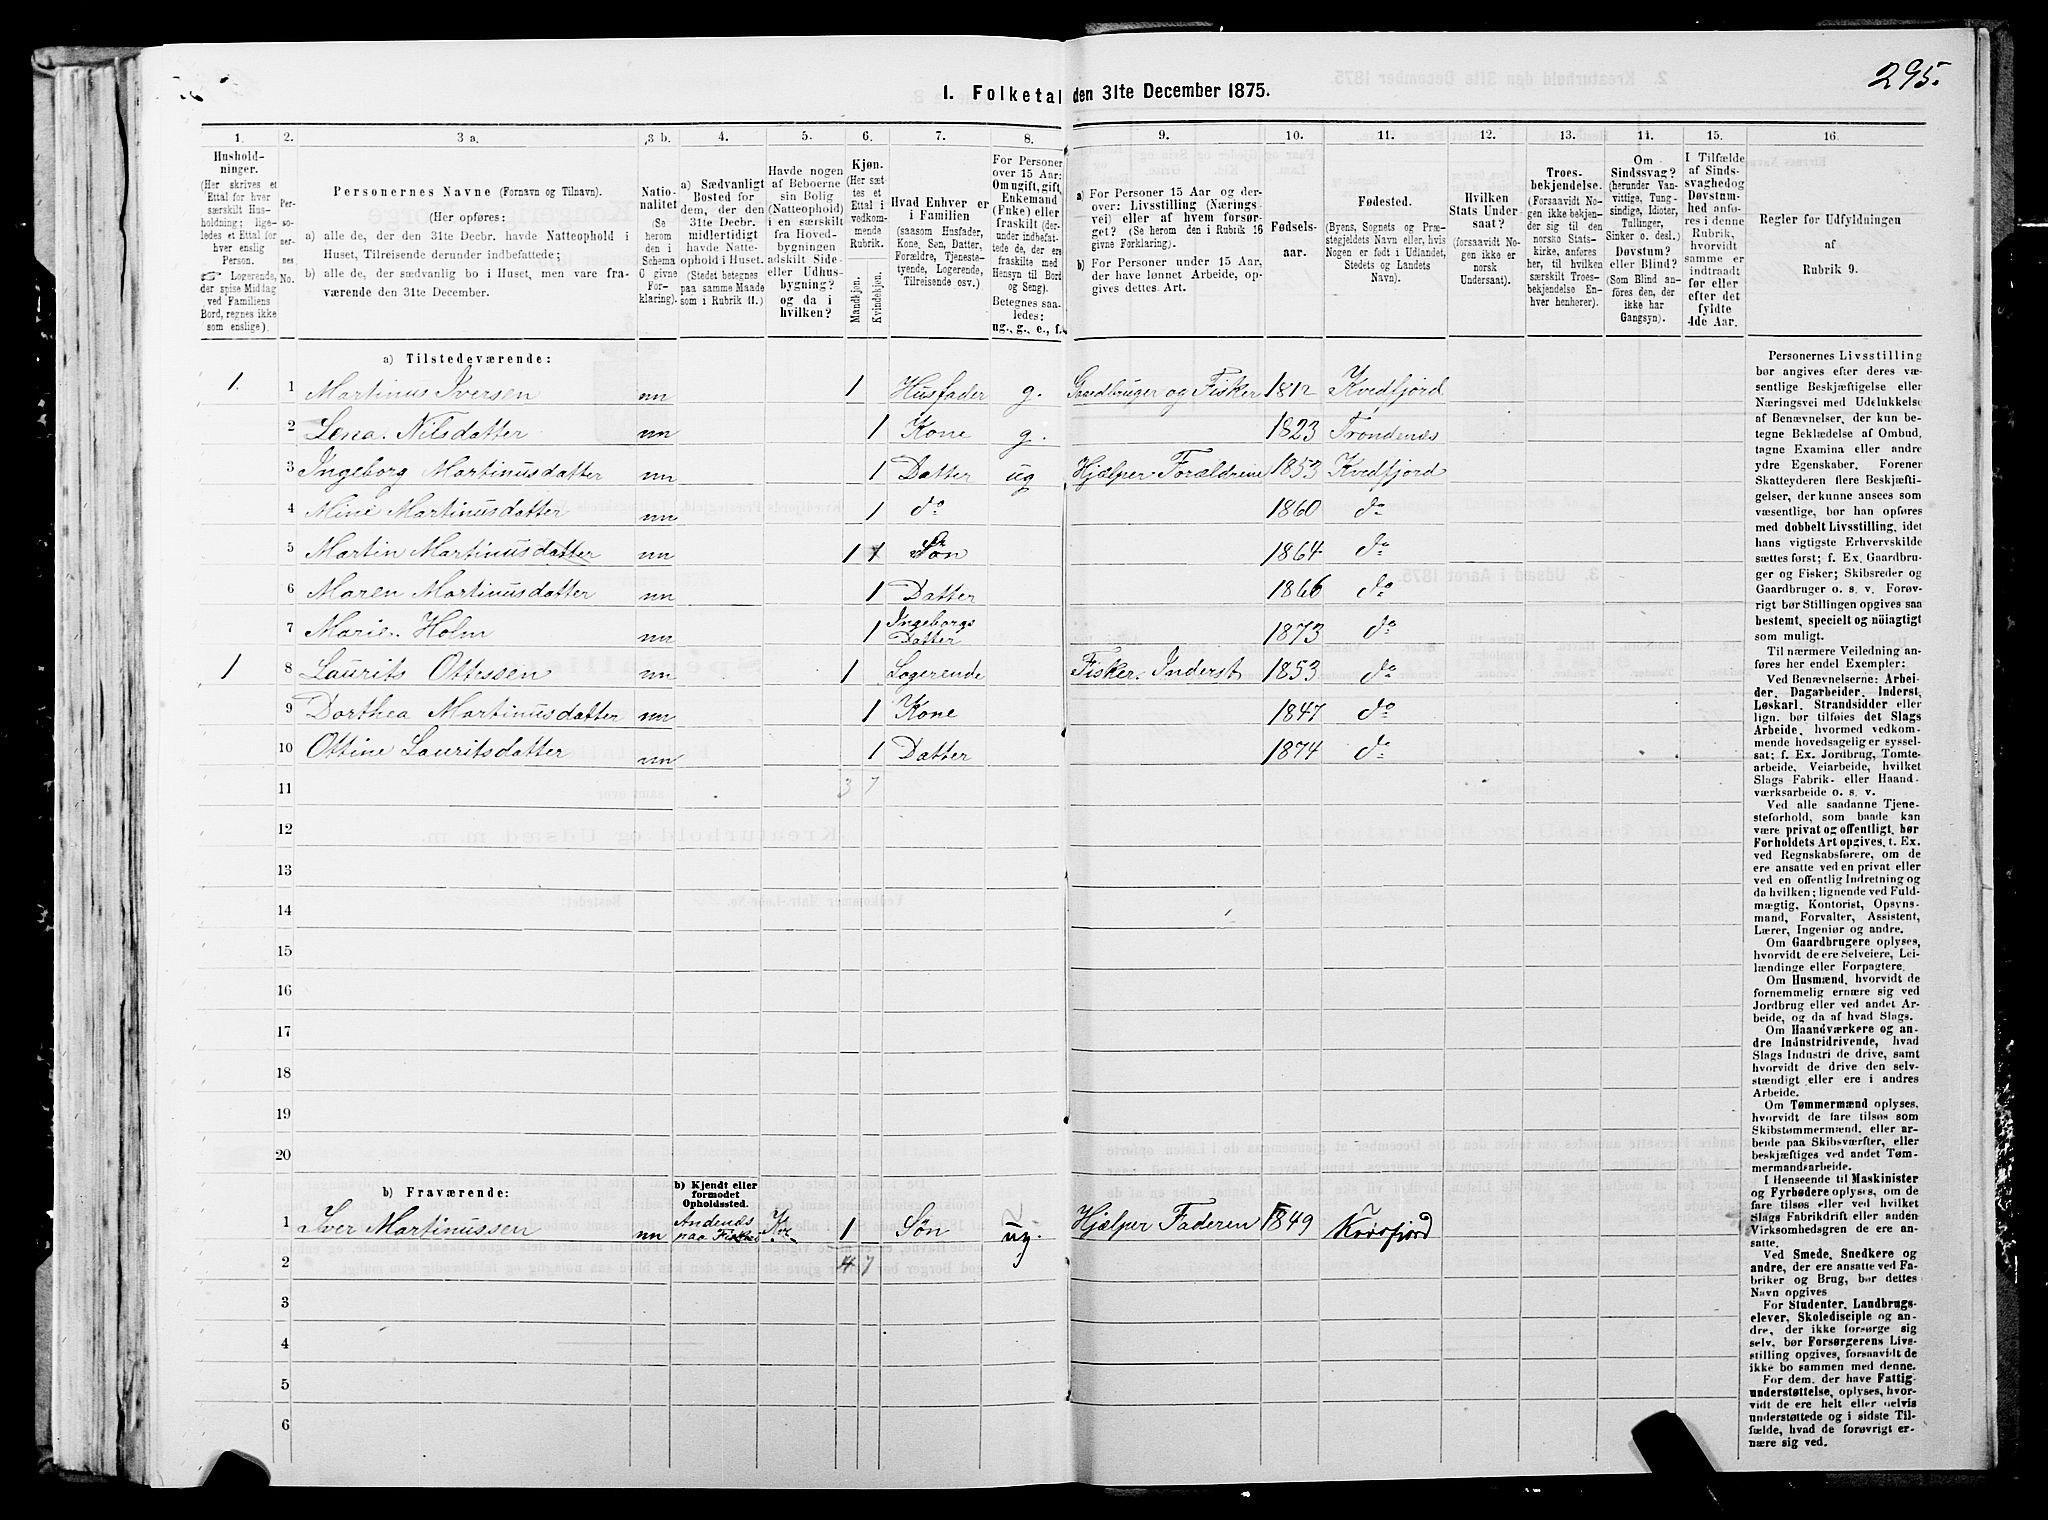 295.
I. Folketal den 31te December 1875.
1. 2. 3 a. 3 b. 4. 5. 6. 7. 8. 9. 10. 11. 12. 13. 14. 15. 16.
Hushold-
ninger.
(Her skrives et
Ettal for hver
særskilt Hus-
holdning; lige-
ledes et Ettal for
hver enslig
Person.
☞ Logerende,
der spise Middag
ved Familiens
Bord, regnes ikke
som enslige).
Per-
so-
ner-
nes
No.
Personernes Navne (Fornavn og Tilnavn).
(Her opføres:
a) alle de, der den 31te Decbr. havde Natteophold i
Huset, Tilreisende derunder indbefattede;
b) alle de, der sædvanlig bo i Huset, men vare fra-
værende den 31te December.
Natio-
nalitet
(Se
herom
den i
Schema
C givne
For-
klaring).
a) Sædvanligt
Bosted for
dem, der den
31te Decbr.
midlertidigt
havde Natte-
ophold i Huset.
(Stedet betegnes
paa samme Maade
som i Rubrik 11.)
Havde nogen
af Beboerne
sin Bolig
(Natteophold)
i en særskilt
fra Hoved-
bygningen
adskilt Side-
eller Udhus-
bygning?
og da i
hvilken?
Kjøn.
(Her sæt-
tes et
Ettal i
vedkom-
mende
Rubrik.
Mandkjøn.
Kvindekjøn.
Hvad Enhver er
i Familien
(saasom Husfader,
Kone, Søn, Datter,
Forældre, Tjeneste-
tyende, Logerende,
Tilreisende osv.)
For Personer
over 15 Aar:
Om ugift, gift,
Enkemand
(Enke) eller
fraskilt (der-
under indbefat-
tede de, der ere
fraskilte med
Hensyn til Bord
og Seng).
Betegnes saa-
ledes:
ug., g., e., f.
a) For Personer 15 Aar og der-
over: Livsstilling (Nærings-
vei) eller af hvem forsør-
get? (Se herom den i Rubrik 16
givne Forklaring).
b) For Personer under 15 Aar,
der have lønnet Arbeide, op-
gives dettes Art.
Fødsels-
aar.
Fødested.
(Byens, Sognets og Præ-
stegjeldets Navn eller, hvis
Nogen er født i Udlandet,
Stedets og Landets
Navn).
Hvilken
Stats Under-
saat?
(forsaavidt No-
gen ikke er
norsk
Undersaat).
Troes-
bekjendelse.
(Forsaavidt No-
gen ikke bekjen-
der sig til den
norske Stats-
kirke, anføres
her, til hvilken
særskilt Troes-
bekjendelse En-
hver henhører).
Om
Sindssvag?
(herunder Van-
vittige, Tung-
sindige, Idioter,
Tullinger,
Sinker o. desl.)
Døvstum?
eller Blind?
(Som Blind an-
føres den, der
ikke har
Gangsyn).
I Tilfælde
af Sinds-
svaghed og
Døvstum-
hed anfø-
res i denne
Rubrik,
hvorvidt
samme er
indtraadt
før eller
efter det
fyldte
4de Aar.
Regler for Udfyldningen
af
Rubrik 9.
a) Tilstedeværende:
1. 1 Martinus Iversen nn 1 Husfader g. Gaardbruger og Fisker 1812 Kvedfjord
2 Lena. Nilsdatter nn 1 Kone g. 1823 Trondenæs
3 Ingeborg Martinusdatter nn 1 Datter ug Hjælper Forældrene 1853 Kvedfjord
4 Mine Martinusdatter nn 1 do 1860 do
5 Martin Martinusdatter nn 1 1 Søn 1864 do
6 Maren Martinusdatter nn 1 Datter 1866 do
7 Marie. Holm nn 1 Ingeborgs Datter 1873 do
1 8 Laurits Ottesen nn 1 Logerende Fisker. Inderst 1853 do
9 Dorthea Martinusdatter nn 1 Kone 1847 do
10 Ottine Lauritsdatter nn 1 Datter 1874 do
11 3 7
12
13
14
15
16
17
18
19
20
b) Fraværende:
b) Kjendt eller
formodet
Opholdssted.
1 Iver Martinussen nn Andenæs paa Fiskeri 1 Søn ug. Hjælper Faderen 1849
2 4 7
3
4
5
6
Personernes Livsstilling
bør angives efter deres væ-
sentlige Beskjæftigelse eller
Næringsvei med Udelukkelse
af Benævnelser, der kun be-
tegne Beklædelse af Ombud,
tagne Examina eller andre
ydre Egenskaber. Forener
Skatteyderen flere Beskjæfti-
gelser, der kunne ansees som
væsentlige, bør han opføres
med dobbelt Livsstilling, idet
hans vigtigste Erhvervskilde
sættes først; f. Ex. Gaardbru-
ger og Fisker; Skibsreder og
Gaardbruger o. s. v. Forøv-
rigt bør Stillingen opgives saa
bestemt, specielt og nøiagtigt
som muligt.
Til nærmere Veiledning an-
føres her endel Exempler:
Ved Benævnelserne: Arbei-
der, Dagarbeider, Inderst,
Løskarl, Strandsidder eller
lign. bør tilføies det Slags
Arbeide, hvormed vedkom-
mende hovedsagelig er syssel-
sat; f. Ex. Jordbrug, Tomte-
arbeide, Veiarbeide, hvilket
Slags Fabrik- eller Haand-
værksarbeide o. s. v.
Ved alle saadanne Tjene-
steforhold, som baade kan
være privat og offentligt, bør
Forholdets Art opgives, t. Ex.
ved Regnskabsførere, om de
ere ansatte ved en privat eller
ved en offentlig Indretning og
da hvilken; lignende ved Fuld-
mægtig, Kontorist, Opsyns-
mand, Forvalter, Assistent,
Lærer, Ingeniør og andre.
Om Gaardbrugere oplyses,
hvorvidt de ere Selveiere, Lei-
lændinge eller Forpagtere.
Om Husmænd, hvorvidt de
fornemmelig ernære sig ved
Jordbrug eller ved andet Ar-
beide, og da af hvad Slags.
Om Haandværkere og an-
dre Industridrivende, hvad
Slags Industri de drive, samt
hvorvidt de drive den selv-
stændigt eller ere i andres
Arbeide.
Om Tømmermænd oplyses,
hvorvidt de fare tilsøs som
Skibstømmermænd, eller ar-
beide paa Skibsværfter, eller
beskjæftiges ved andet Tøm-
mermandsarbeide.
I Henseende til Maskinister
og Fyrbødere oplyses, om de
fare tilsøs eller ved hvilket
Slags Fabrikdrift eller anden
Virksomhedsgren de ere an-
satte.
Ved Smede, Snedkere og
andre, der ere ansatte ved Fa-
briker og Brug, bør dettes
Navn opgives
For Studenter, Landbrugs-
elever, Skoledisciple og an-
dre, der ikke forsørge sig
selv, bør Forsørgerens Livs-
stilling opgives, forsaavidt de
ikke bo sammen med denne.
For dem, der have Fattig-
understøttelse, oplyses, hvor-
vidt de ere helt eller delvis
understøttede og i sidste Til-
fælde, hvad de forøvrigt er-
nære sig ved.